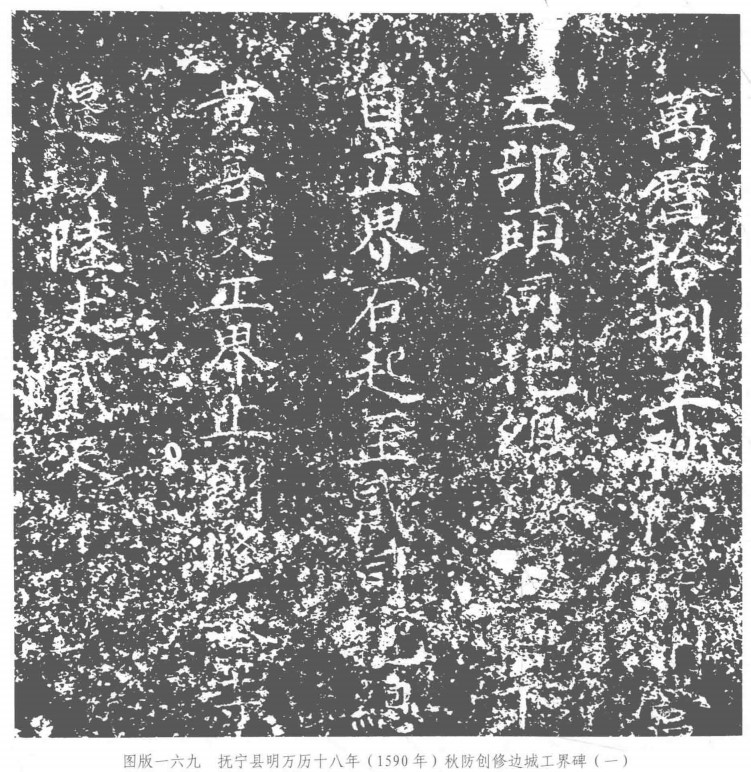 萬曆拾捌年秋防營
左部頭司把總下
自立界石起至貳司把總
黃喜文工界止創修叁等
邊城陸丈貳尺
图版一六九 抚宁县明万历十八年（1590年）秋防创修边城工界碑（一）